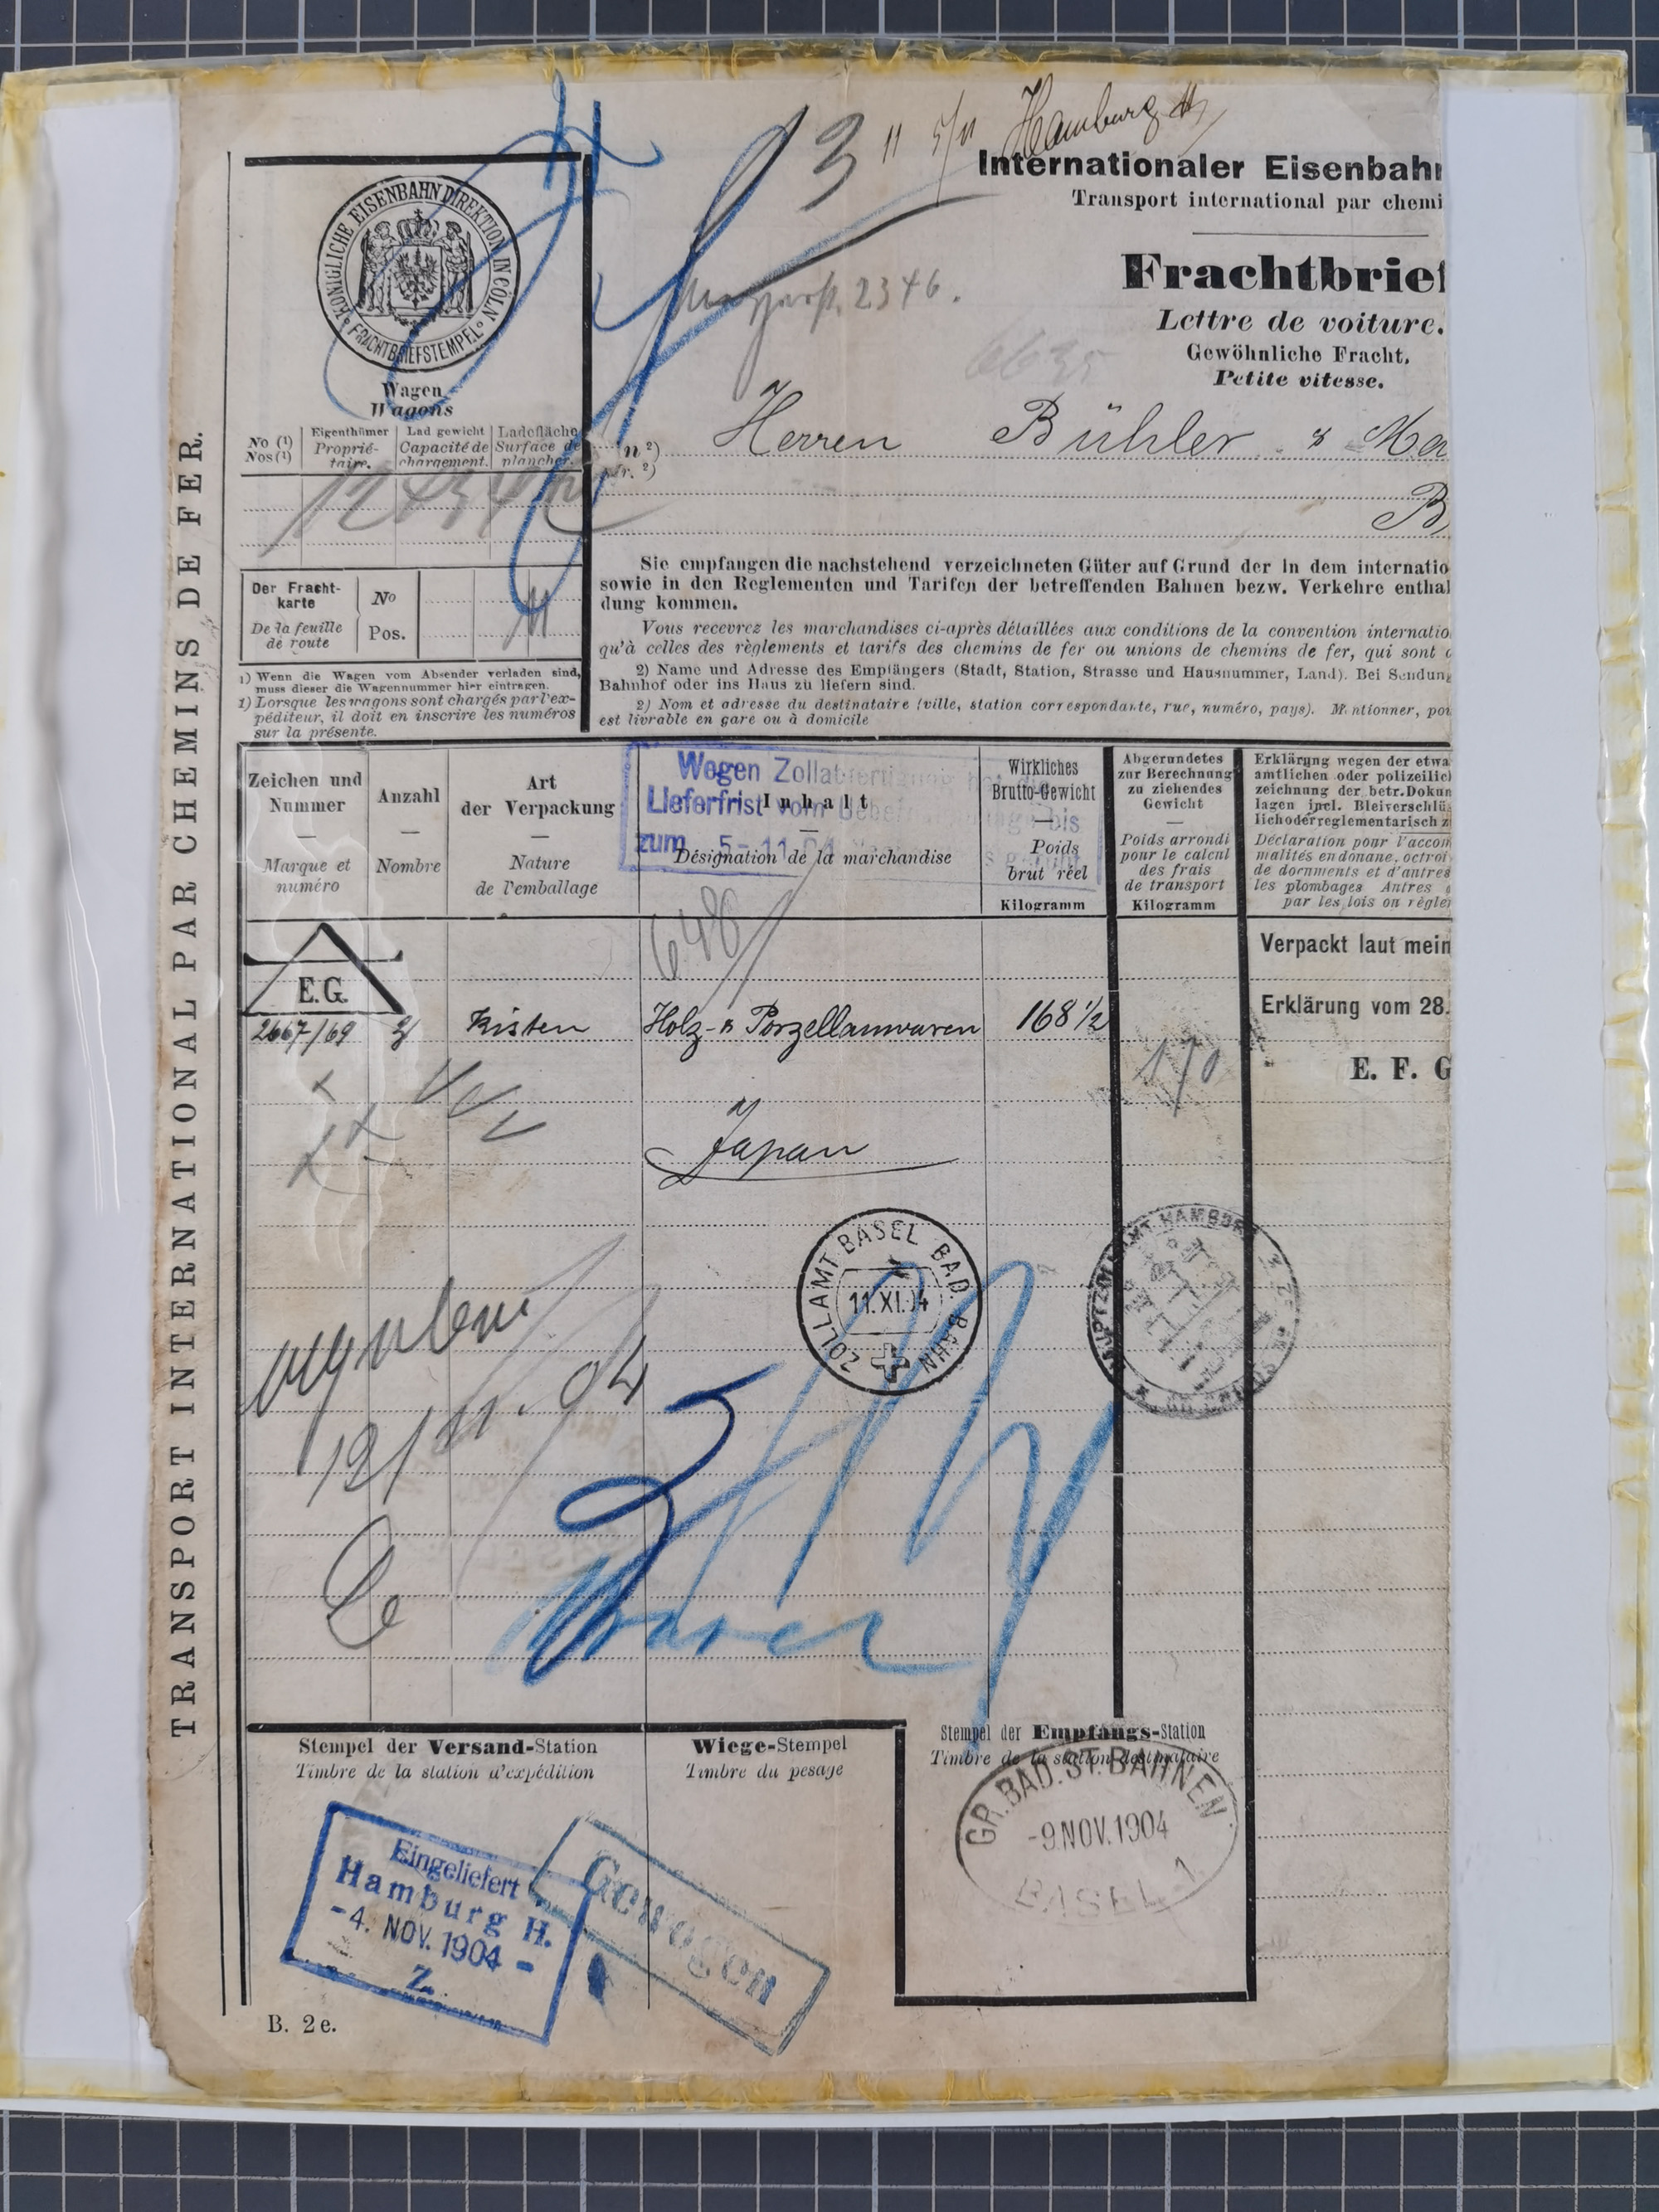 3 " 5/11 Hamburg H
Internationaler Eisenbahn
Transport international par chemi
Frachtbrief
Lettre de voiture.
Gewöhnliche Fracht.
Petite vitesse.
KÖNIGLICHE EISENBAHN DIREKTION IN CÖLN
FRACHTBRIEFSTEMPEL
2346.
6635
Wagen
Wagons
No (1)
Nos (1)
Eigenthümer
Proprié-
taire.
Lad gewicht
Capacité de
chargement.
Ladefläche
Surface de
plancher.
(n 2)
r. 2)
Herren Bühler & Me
B
Der Fracht-
karte
De la feuille
de route
No
Pos.
11
1) Wenn die Wagen vom Absender verladen sind,
muss dieser die Wagennummer hier eintragen.
1) Lorsque les wagons sont chargés par l'ex-
péditeur, il doit en inscrire les numéros
sur la présente.
Sie empfangen die nachstehend verzeichneten Güter auf Grund der in dem internatio
sowie in den Reglementen und Tarifen der betreffenden Bahnen bezw. Verkehre enthal
dung kommen.
Vous recevrez les marchandises ci-après détaillées aux conditions de la convention internatio
qu'à celles des règlements et tarifs des chemins de fer ou unions de chemins de fer, qui sont
2) Name und Adresse des Empfängers (Stadt, Station, Strasse und Hausnummer, Land). Bei Sendung
Bahnhof oder ins Haus zu liefern sind.
2) Nom et adresse du destinataire (ville, station correspondante, rue, numéro, pays). Mentionner, pou
est livrable en gare ou à domicile
TRANSPORT INTERNATIONAL PAR CHEMINS DE FER.
Zeichen und
Nummer
—
Marque et
numéro
Anzahl
—
Nombre
Art
der Verpackung
—
Nature
de l'emballage
Wegen Zollabfertigung
Lieferfrist vom bis
zum 5-11 04
Inhalt
—
Désignation de la marchandise
Wirkliches
Brutto-Gewicht
—
Poids
brut réel
Kilogramm
Abgerundetes
zur Berechnung
zu ziehendes
Gewicht
—
Poids arrondi
pour le calcul
des frais
de transport
Kilogramm
Erklärung wegen der etwa
amtlichen oder polizeilich
zeichnung der betr. Dokum
lagen incl. Bleiverschlü
lich oder reglementarisch z
Déclaration pour l'accom
malités en douane, octroi
de documents et d'antres
les plombages Antres
par les lois ou règle
648
E.G.
2667/69 3/ Kisten Holz- & Porzellanwaren 168 1/2
170
Japan
Verpackt laut mein
Erklärung vom 28.
E. F. G
ZOLLAMT BASEL BAD. BAHN
11.XI.04
HAUPTZOLLAMT HAMBURG
12/11.04
Stempel der Versand-Station
Timbre de la station d'expédition
Wiege-Stempel
Timbre du pesage
Stempel der Empfangs-Station
Timbre de la station destinataire
Eingeliefert
Hamburg H.
-4. NOV. 1904 -
Z.
Gewogen
GR. BAD. ST. BAHNEN
-9 NOV. 1904
BASEL 1
B. 2 e.